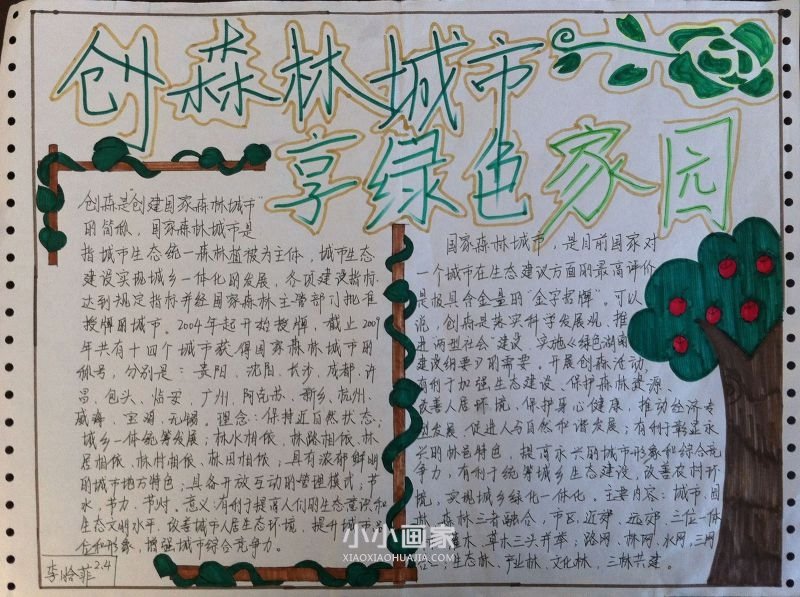 创森林城市
享绿色家园
创森是"创建国家森林城市"
的简称，国家森林城市是
指城市生态统一森林植被为主体，城市生态
建设实现城乡一体化的发展，各项建设指标
达到规定指标并经国家森林主管部门批准
授牌的城市。2004年起开始授牌，截止2009
年共有十四个城市获得国家森林城市的
称号，分别是：贵阳、沈阳、长沙、成都、许
昌、包头、临安、广州、阿克苏、新乡、杭州、
威海、宝鸡、无锡。理念：保持近自然状态；
城乡一体统筹发展；林水相依、林路相依、林
居相依、林村相依、林田相依；具有浓郁鲜明
的城市地方特色；具备开放互动的管理模式；节
水、节力、节财。意义：有利于提高人们的生态意识和
生态文明水平，改善城市人居生态环境，提升城市
和形象，增强城市综合竞争力。
李晗菲 2.4
国家森林城市，是目前国家对
一个城市在生态建议方面的最高评价
是极具含金量的"金字招牌"。可以
说，创森是落实科学发展观、推
进两型社会建设、实施《绿色湖南
建设纲要》的需要。开展创森活动，
有利于加强生态建设、保护森林资源、
改善人居环境，保护身心健康，推动经济
发展，促进人与自然和谐发展；有利于彰显永
兴的林邑特色，提高永兴的城市形象和综合竞
争力，有利于统筹城乡生态建设，改善农村环
境，实现城乡绿化一体化。主要内容：城市、园
林、森林三者融合，市区、近郊、远郊三位一体
水、草木三头并举，路网、林网、水网、三网
生态林、产业林、文化林，三林共建。
小小画家
XIAOXIAOHUAJIA.COM